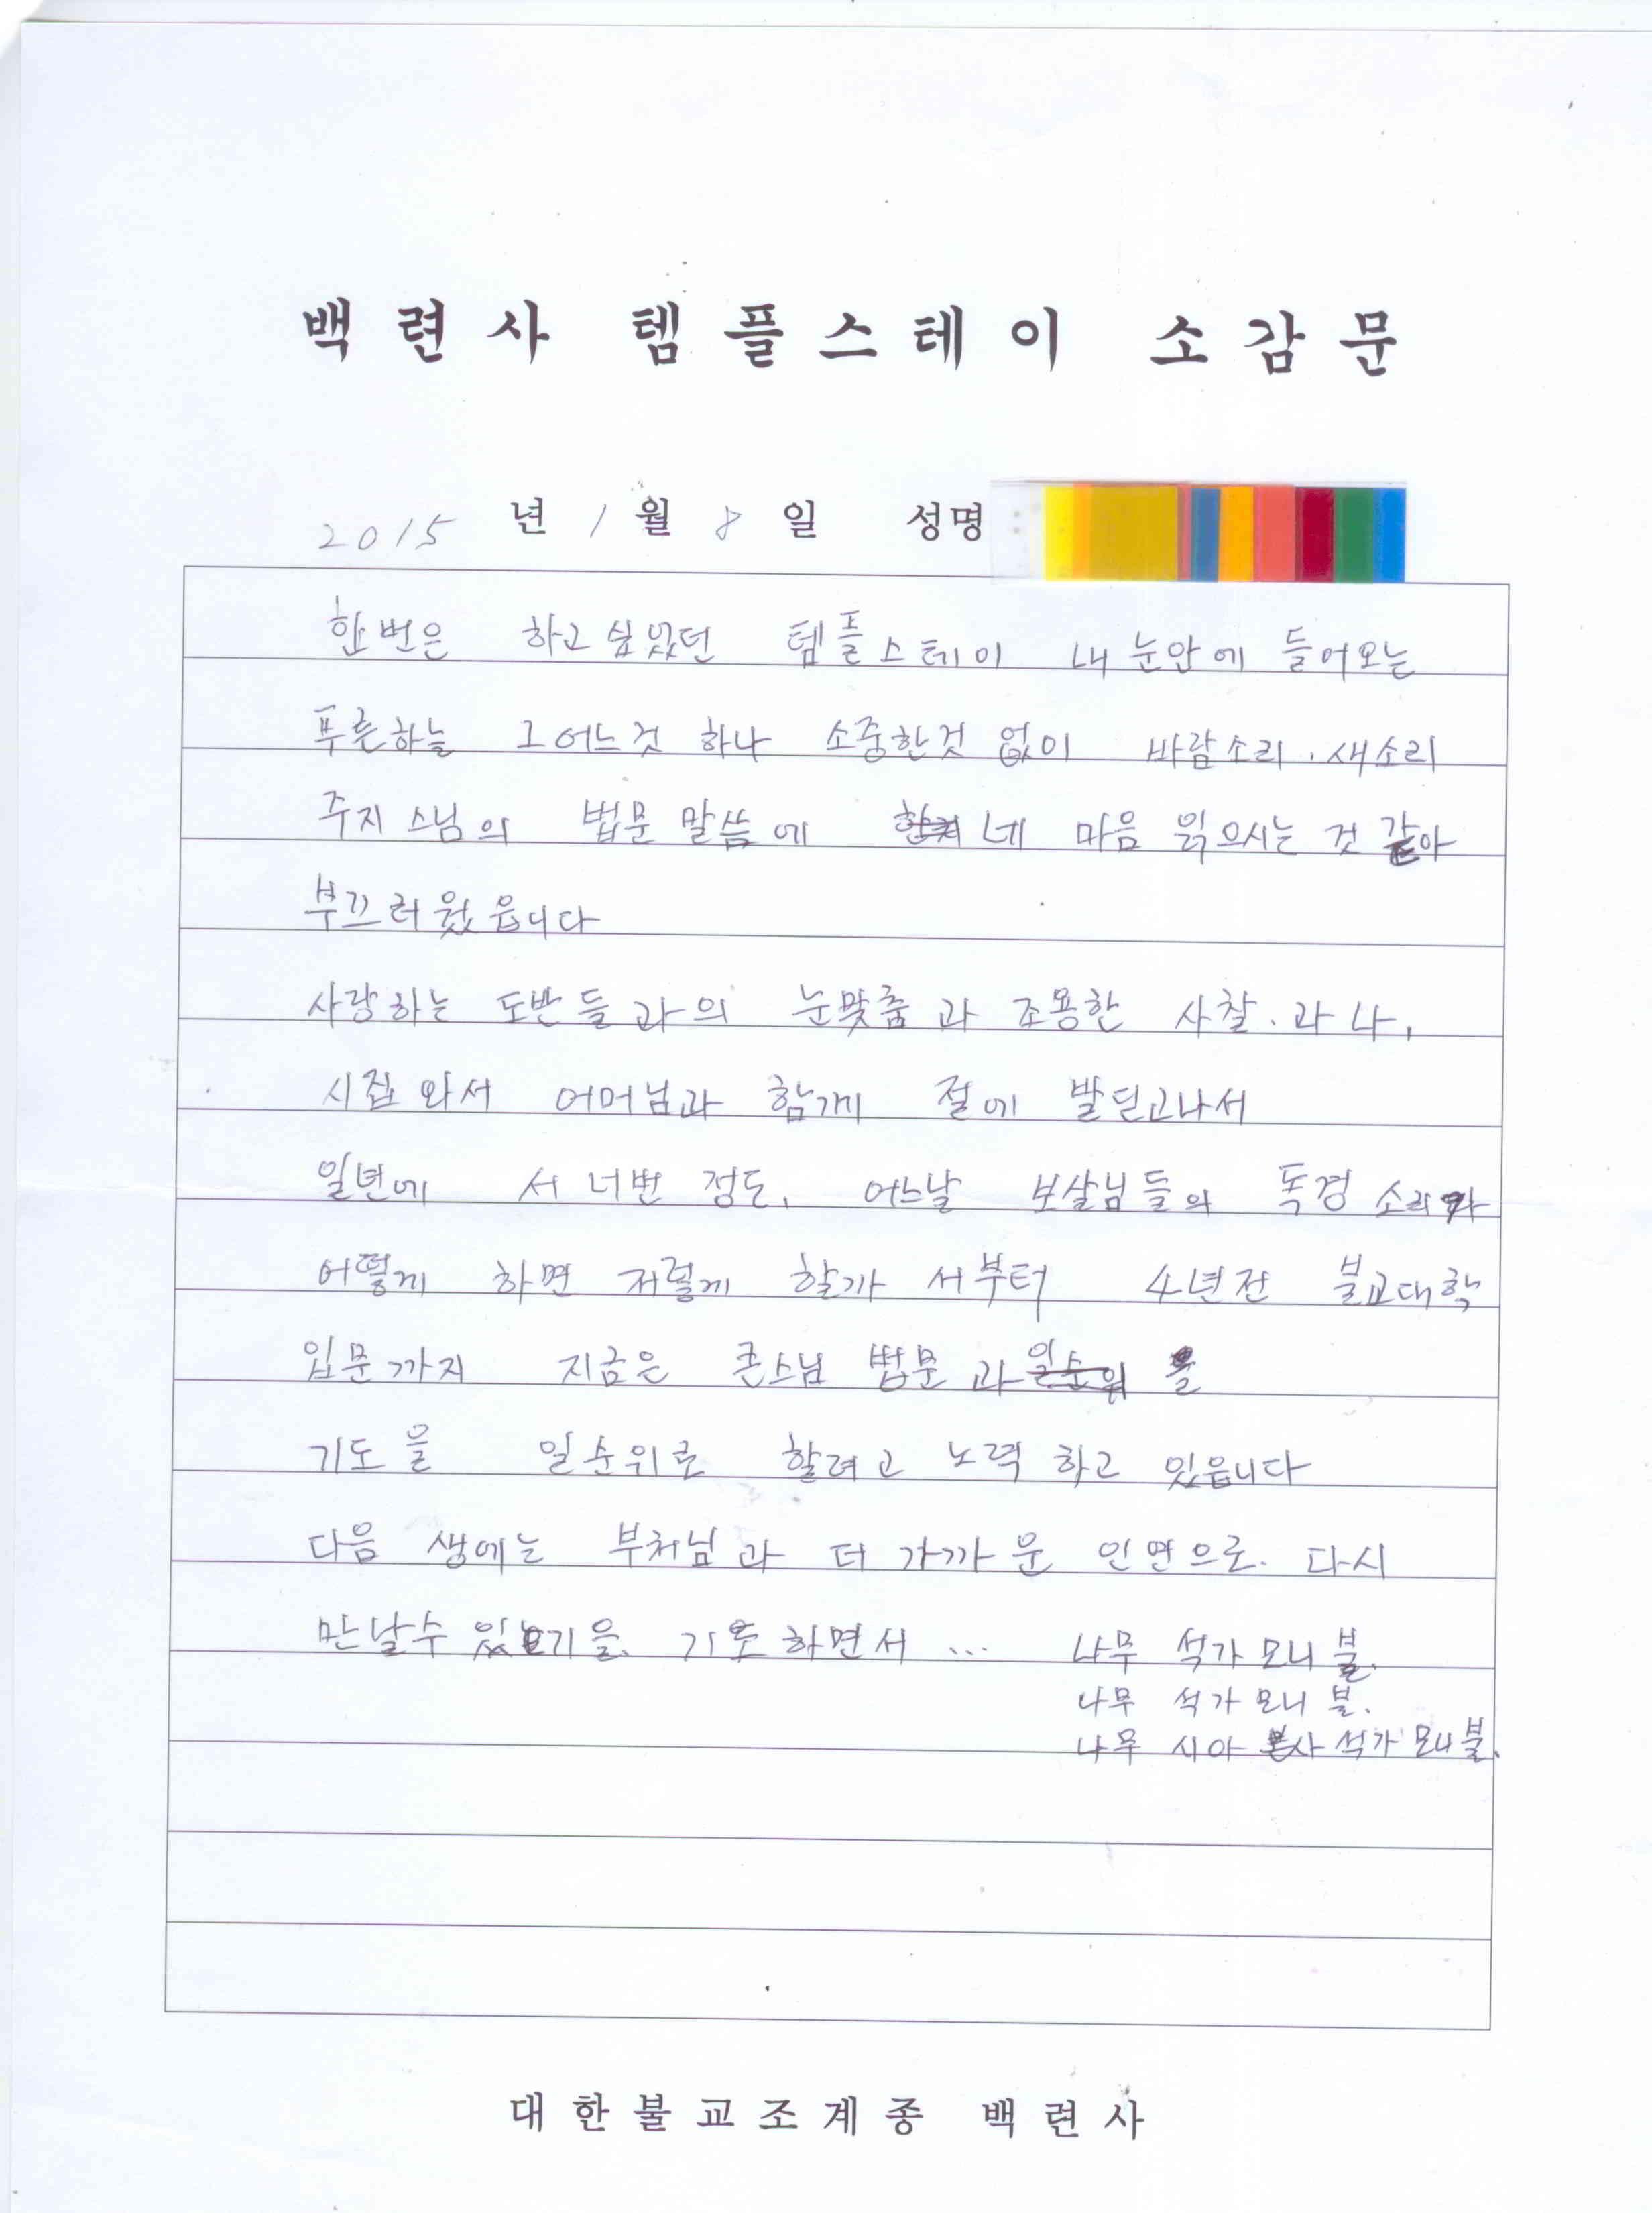 백련사 템플스테이 소감문
2015 년 1 월 8 일 성명
한번은 하고싶었던 템플스테이 내 눈안에 들어오는
푸른하늘 그어느것 하나 소중한것 없이 바람소리. 새소리
주지스님의 법문 말씀에 네 마음 읽으시는 것 같아
부끄러웠읍니다
사랑하는 도반들과의 눈맞춤과 조용한 사찰. 과 나,
시집와서 어머님과 함게 절에 발딛고나서
일년에 서너번 정도, 어느날 보살님들의 독경 소리가
어떻게 하면 저렇게 할까 서부터 4년전 불교대학
입문까지 지금은 큰스님 법문과 일순위
기도을 일순위로 할려고 노력 하고 있읍니다
다음 생에는 부처님과 더 가까운 인연으로. 다시
만날수 있기을. 기도하면서 ... 나무 석가모니 불.
나무 석가모니 불.
나무 시아본사 석가모니불.
대한불교조계종 백련사